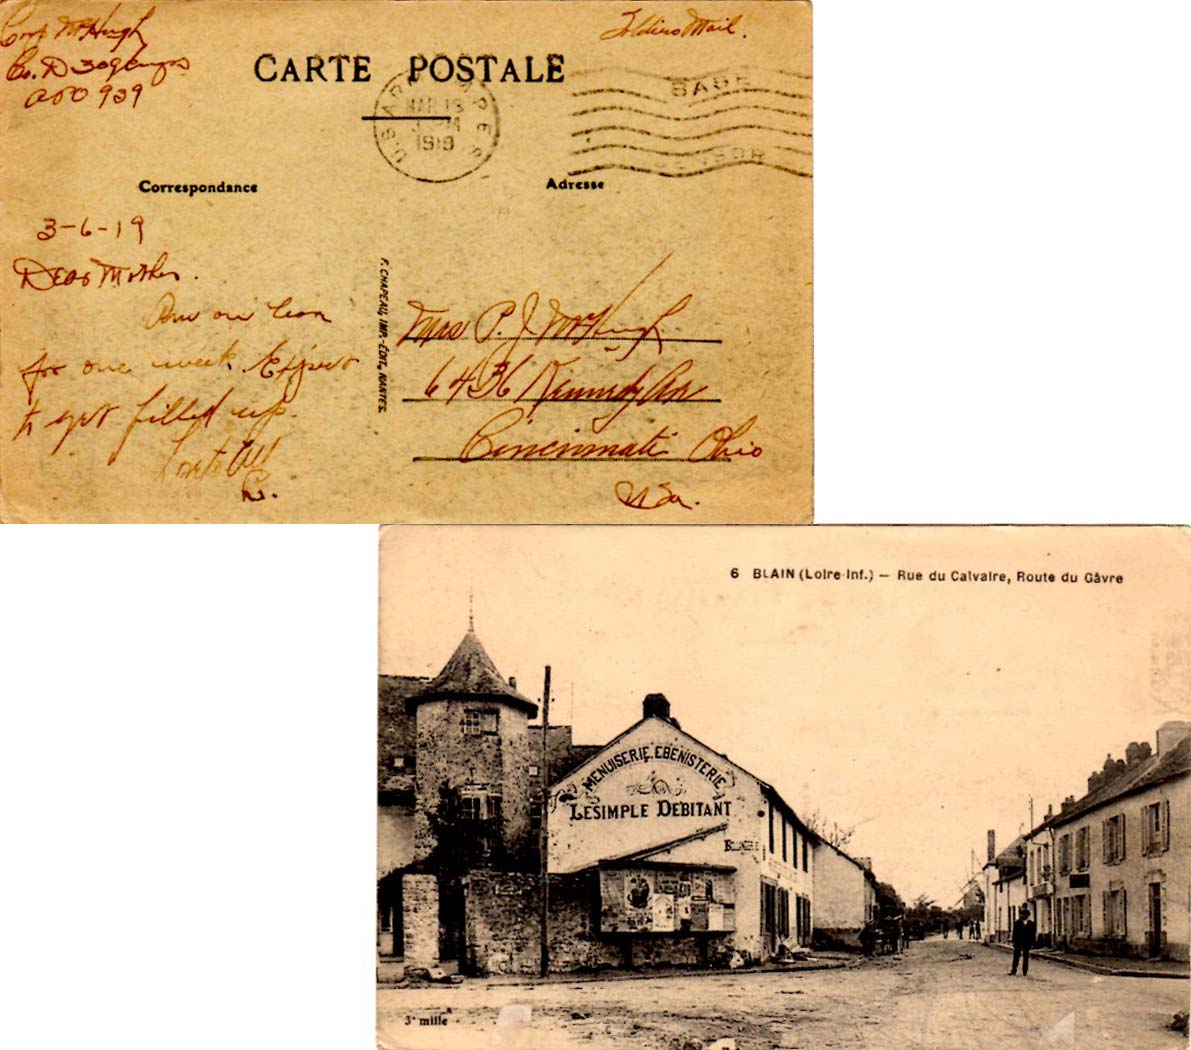 Corp McHugh
Co. D 309 Engrs
APO 939
Soldiers Mail.
CARTE POSTALE
U.S. ARMY
MAR 18
3 PM
1919
BASE
CENSOR
Correspondance
Adresse
3-6-19
Dear Mother.
Am on leave
for one week. Expect
to get filled up.
Love to All
F. CHAPEAU, IMP.-ÉDIT., NANTES.
Mrs P. J. McHugh
6436 Kennedy Ave
Cincinnati Ohio
USA.
6 BLAIN (Loire-Inf.) — Rue du Calvaire, Route du Gâvre
MENUISERIE. EBENISTERIE
LESIMPLE DEBITANT
3e mille